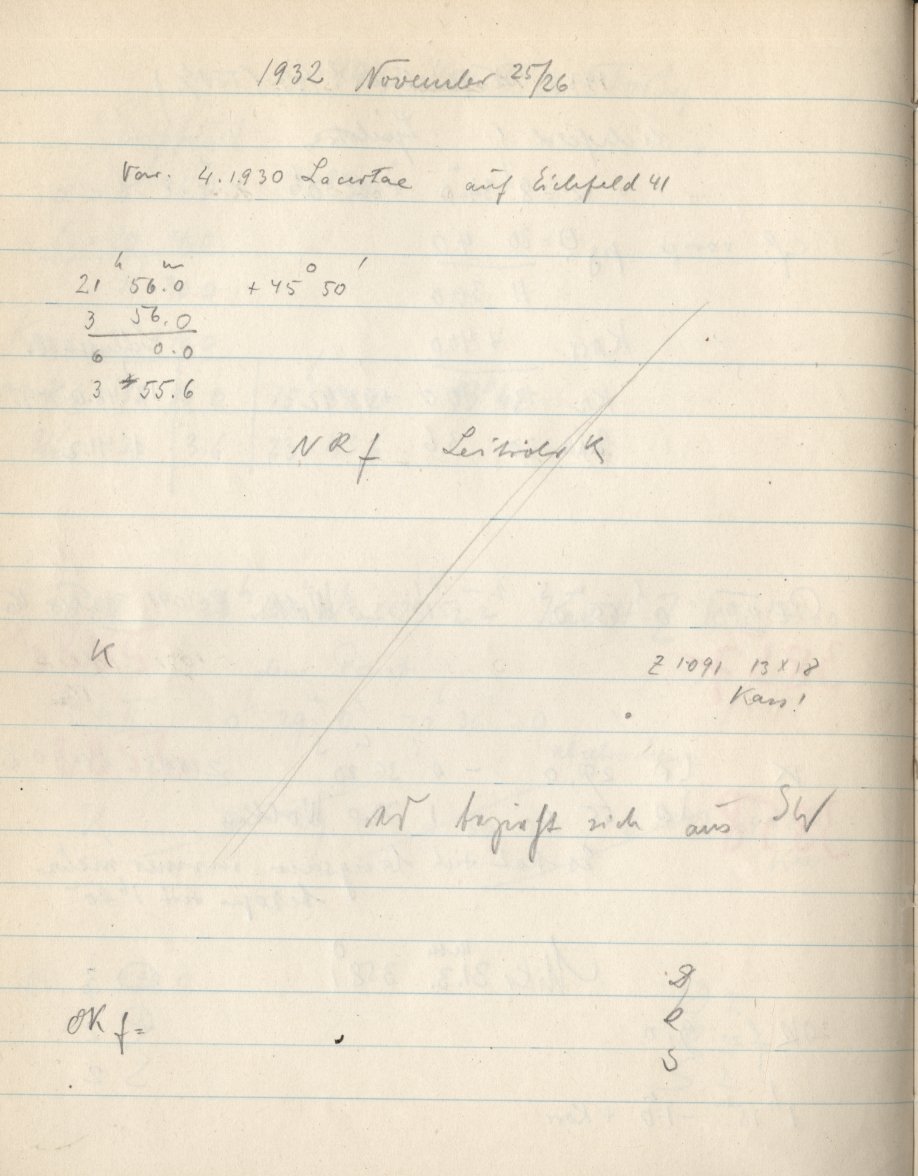 1932 November 25/26
Var. 4.1930 Lacertae auf Eichfeld 41
21h 56m.0 +45° 50'
3 56.0
6 0.0
3 55.6
N R f Leitrohr K
K
Z 1091 13x18
Kass!
bezieht sich aus SW
OK f =
D
R
S